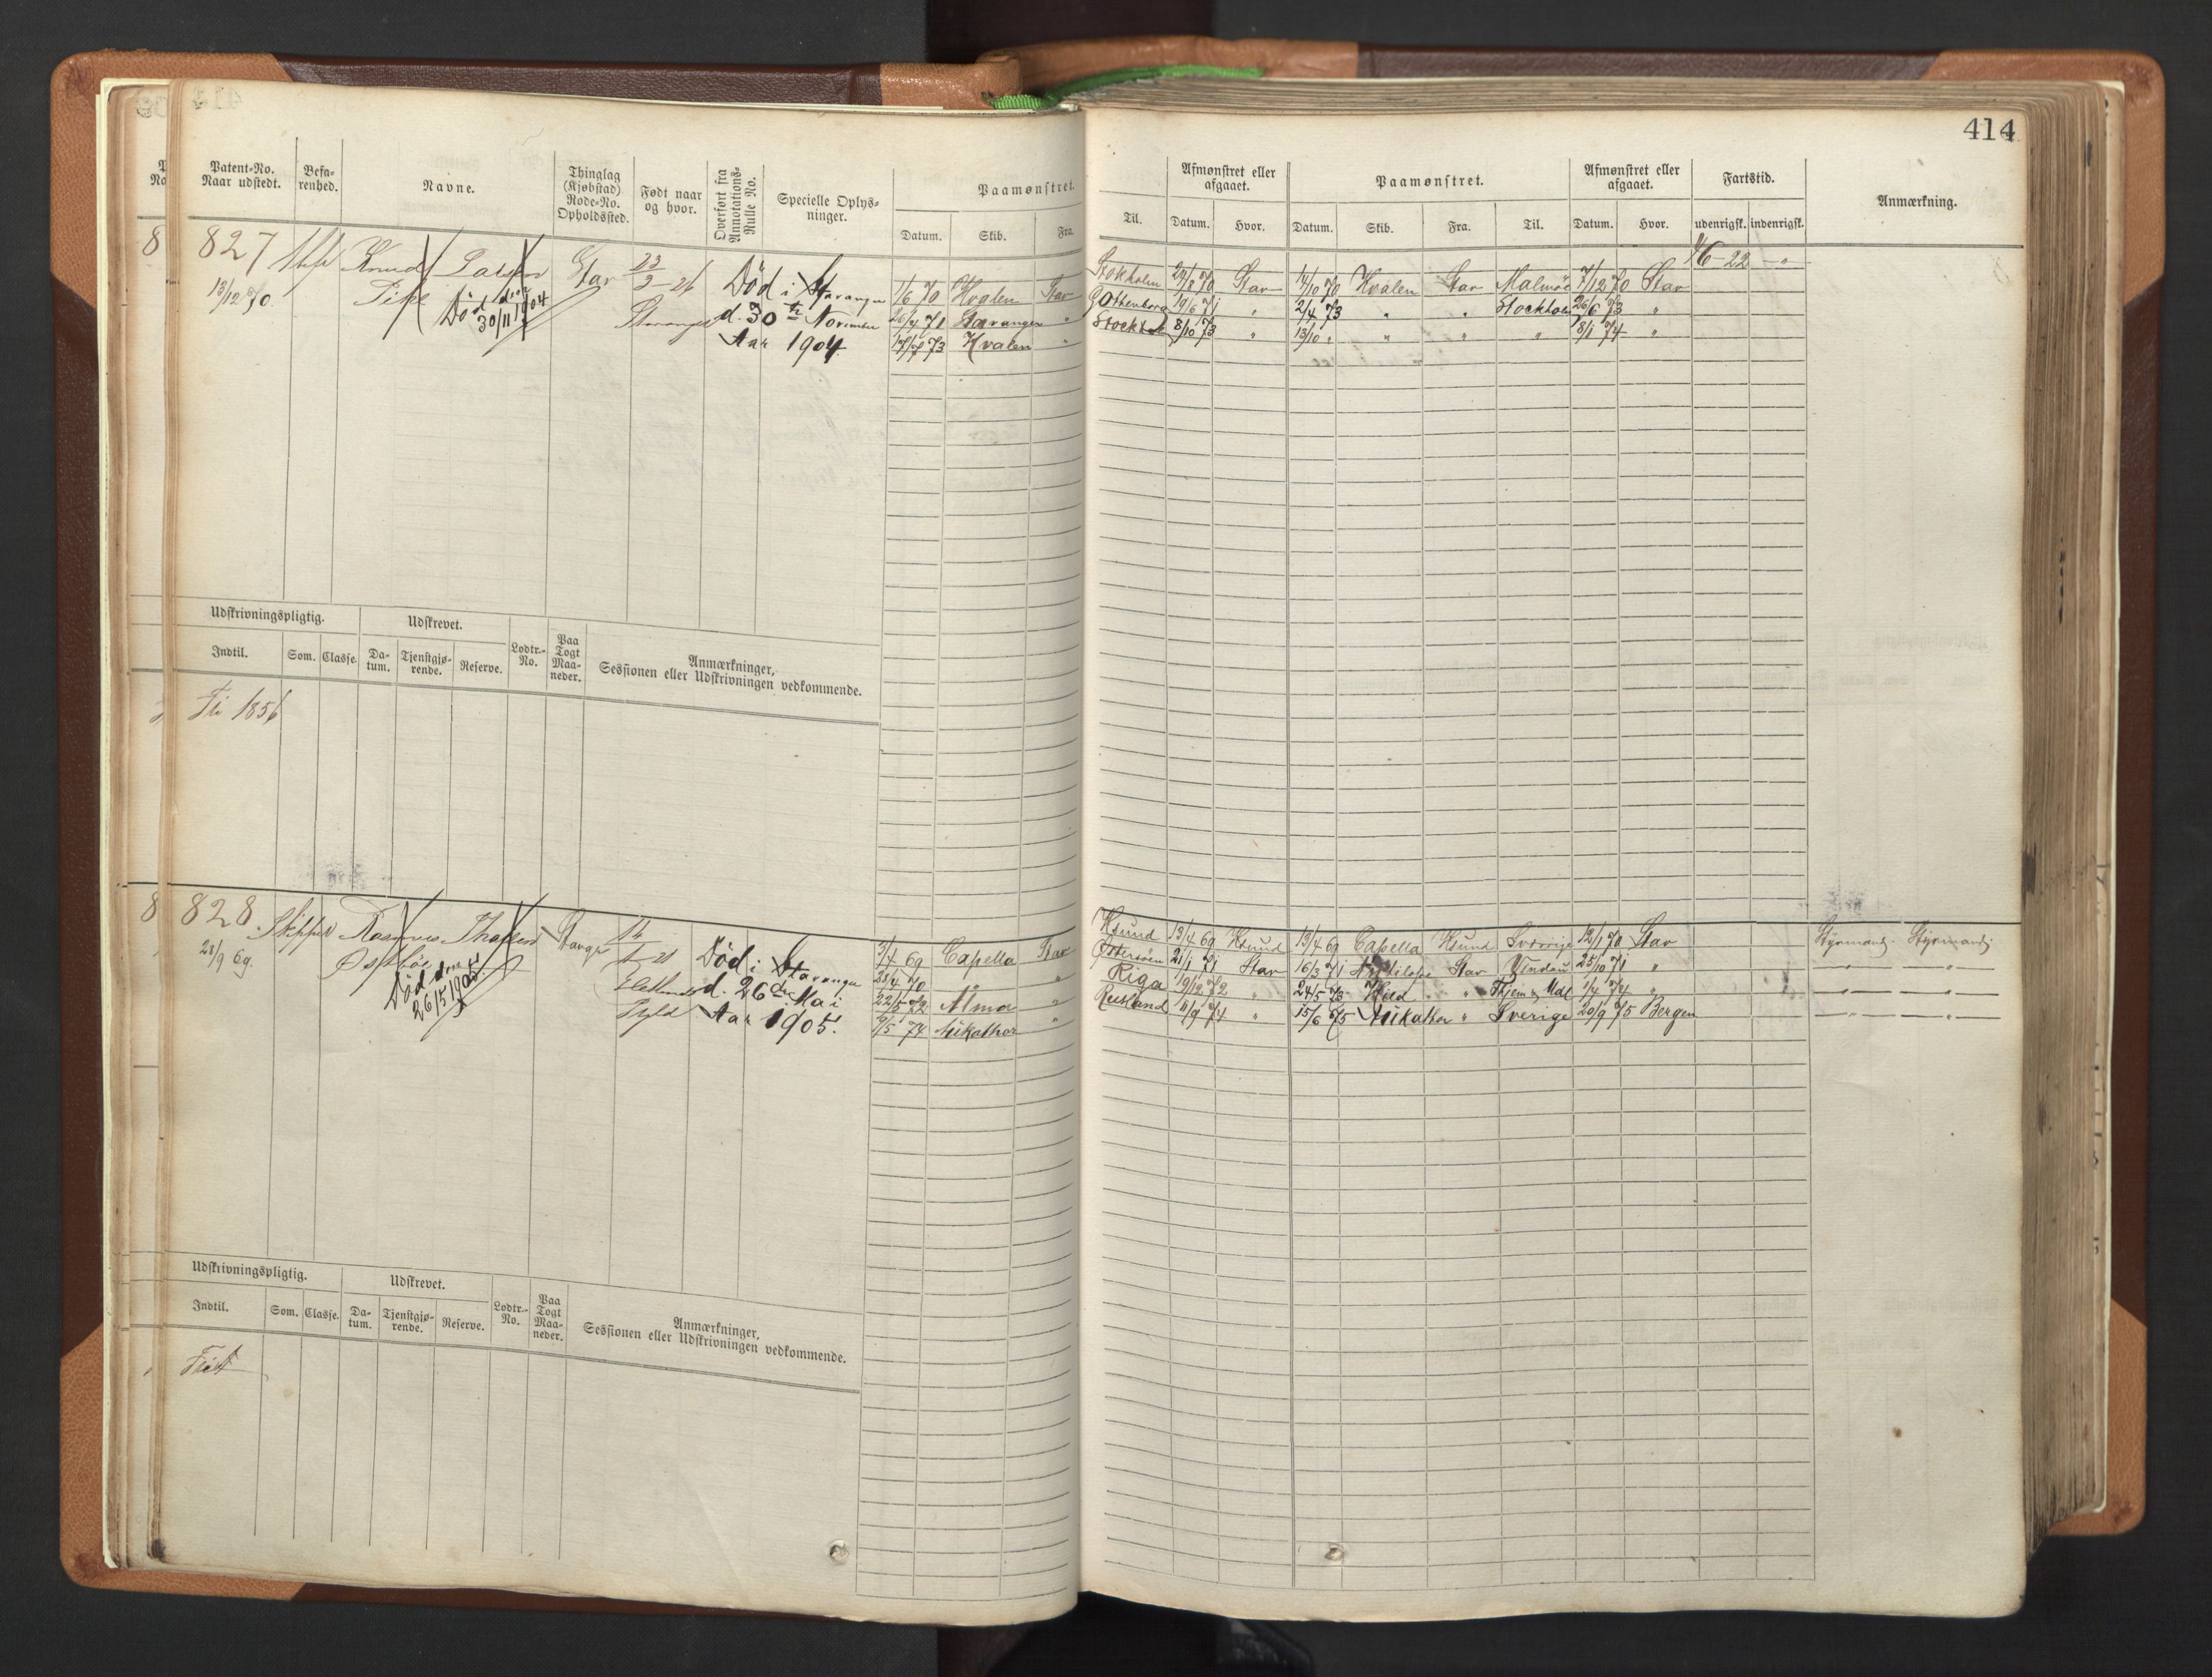 414
Patent-No.
Naar udstedt.
Befa-
renhed.
Navne.
Thinglag
(Kjøbstad)
Rode-No.
Opholdssted.
Født naar
og hvor.
Overført fra
Annotations-
Rulle No.
Specielle Oplys-
ninger.
Paamønstret.
Datum. Skib. Fra.
Til.
Afmønstret eller
afgaaet.
Datum. Hvor.
Paamønstret.
Datum. Skib. Fra. Til.
Afmønstret eller
afgaaet.
Datum. Hvor.
Fartstid.
udenrigsk. indenrigsk.
Anmærkning.
827
13/12 70.
Knud Larsen
Død den
30/11 1904
Stav
23
Stavanger
Død i Stavanger
d. 30te November
Aar 1904
1/6 70 Hvalen Stav Stokholm 24/8 70 Stav 14/10 70 Hvalen Stav Malmøe 7/12 70 Stav
26/4 71 Stavanger " Gottenborg 19/6 71 " 2/4 73 " " Stockholm 26/6 73 "
17/7 73 Hvalen " Stockholm 8/10 73 " 13/10 " " " " 8/1 74 "
Udskrivningspligtig.
Udskrevet.
Lodtr.-
No.
Paa
Togt
Maa-
neder.
Anmærkninger,
Sessionen eller Udskrivningen vedkommende.
Indtil. Som. Classe.
Da-
tum.
Tjenstgjø-
rende.
Reserve.
1856
828
28/9 69.
Skipper
Rasmus
Østbøe
Død den
26/5 1905
Død i Stavanger
d. 26de Mai
Aar 1905.
3/4 69 Capella Stav Ksund 13/4 69 Ksund 13/4 69 Capella Ksund Sverrige 12/1 70 Stav Styrmand. Styrmand.
28/4 70 " " Østersøen 21/1 71 Stav 16/3 71 Stav Vindau 25/10 71 "
22/5 72 Alma " Riga 19/12 72 " 24/5 73 " 1/4 74 "
9/5 74 " Rusland 11/9 74 " 15/6 75 " Sverige 20/9 75 Bergen
Udskrivningspligtig.
Udskrevet.
Lodtr.-
No.
Paa
Togt
Maa-
neder.
Anmærkninger,
Sessionen eller Udskrivningen vedkommende.
Indtil. Som. Classe.
Da-
tum.
Tjenstgjø-
rende.
Reserve.